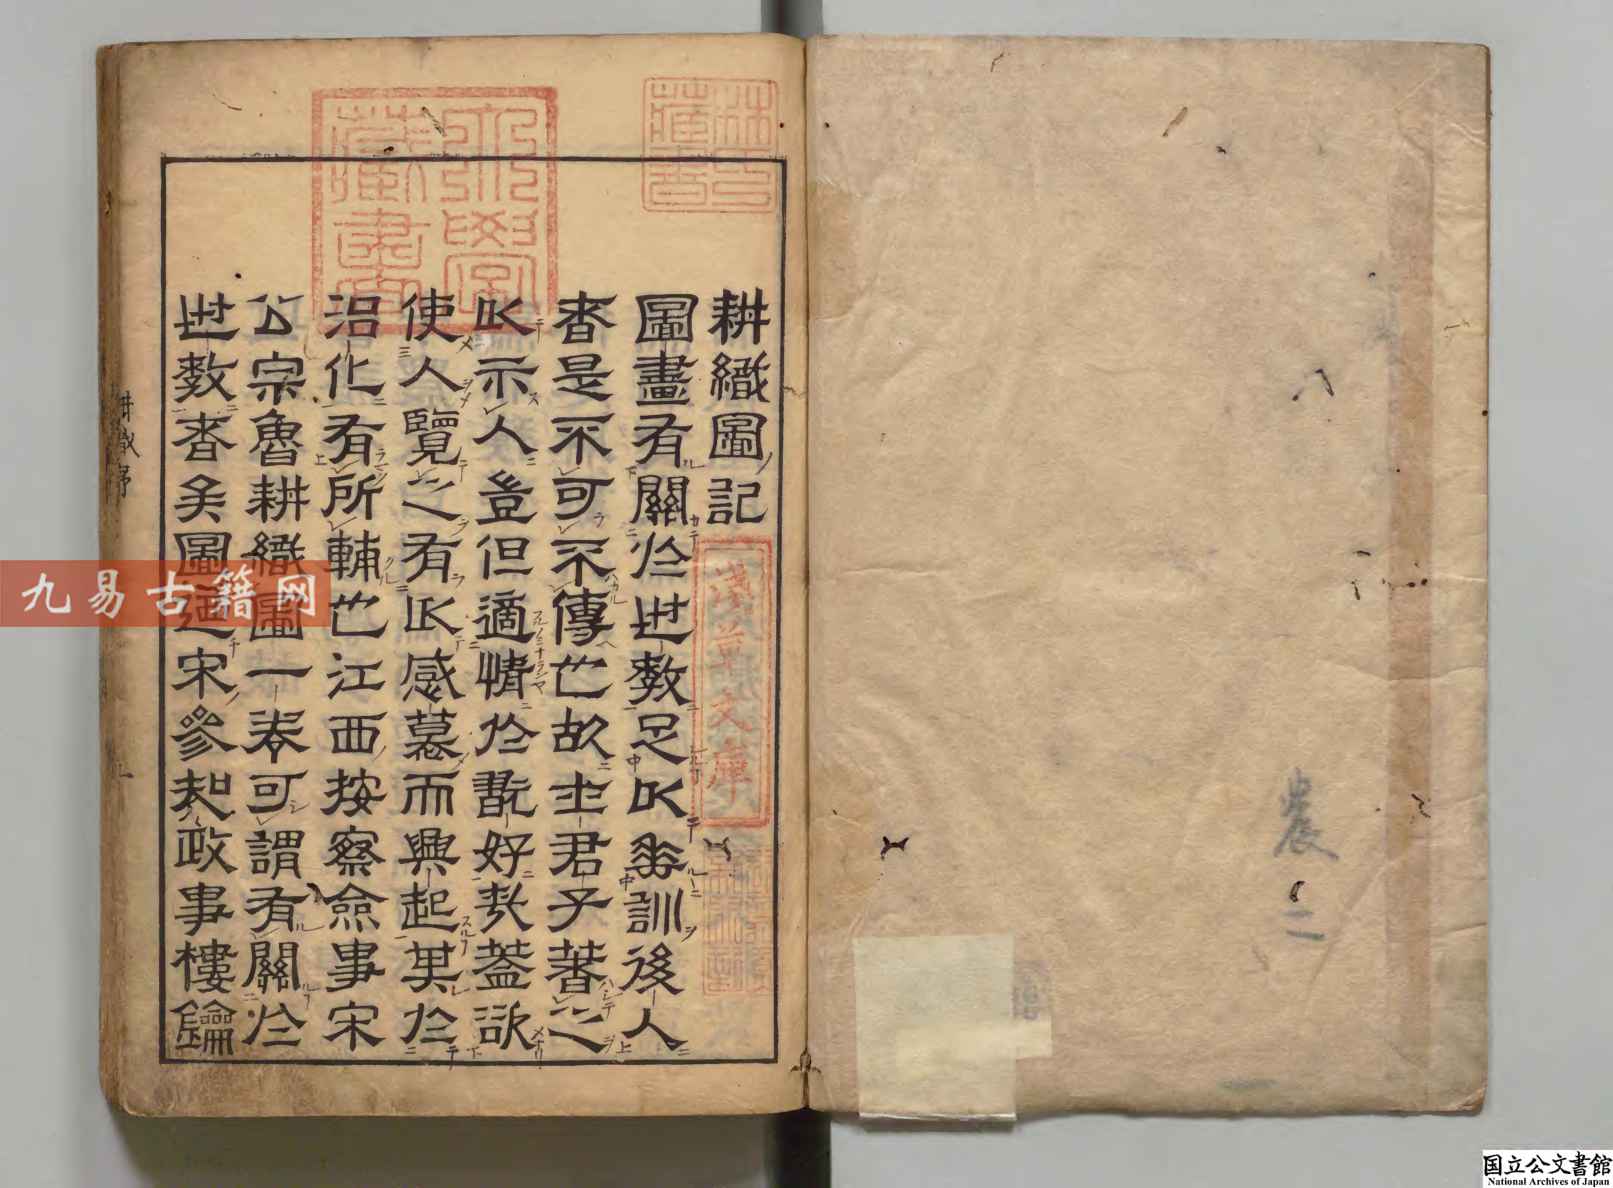 耕織圖記
圖畫有關於世教足以垂訓後人
者是不可不傳也故士君子著之
以示人豈但適情於翫好哉蓋欲
使人覽之有以感慕而興起其於
治化有所輔也江西按察僉事宋
公宗魯耕織圖一卷可謂有關於
世教者矣圖迺宋參知政事樓鑰
耕織序
淺草文庫
農
二
九易古籍网
国立公文書館
National Archives of Japan